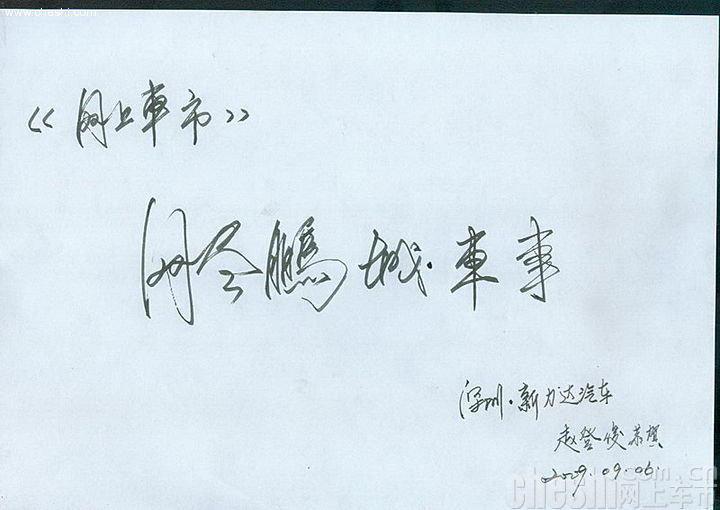 www.cheshi.com
《网上車市》
网尽鹏城車事
深圳·新力达汽车
赵登俊恭贺
2009.09.06.
cheshi.com.cn
网上车市